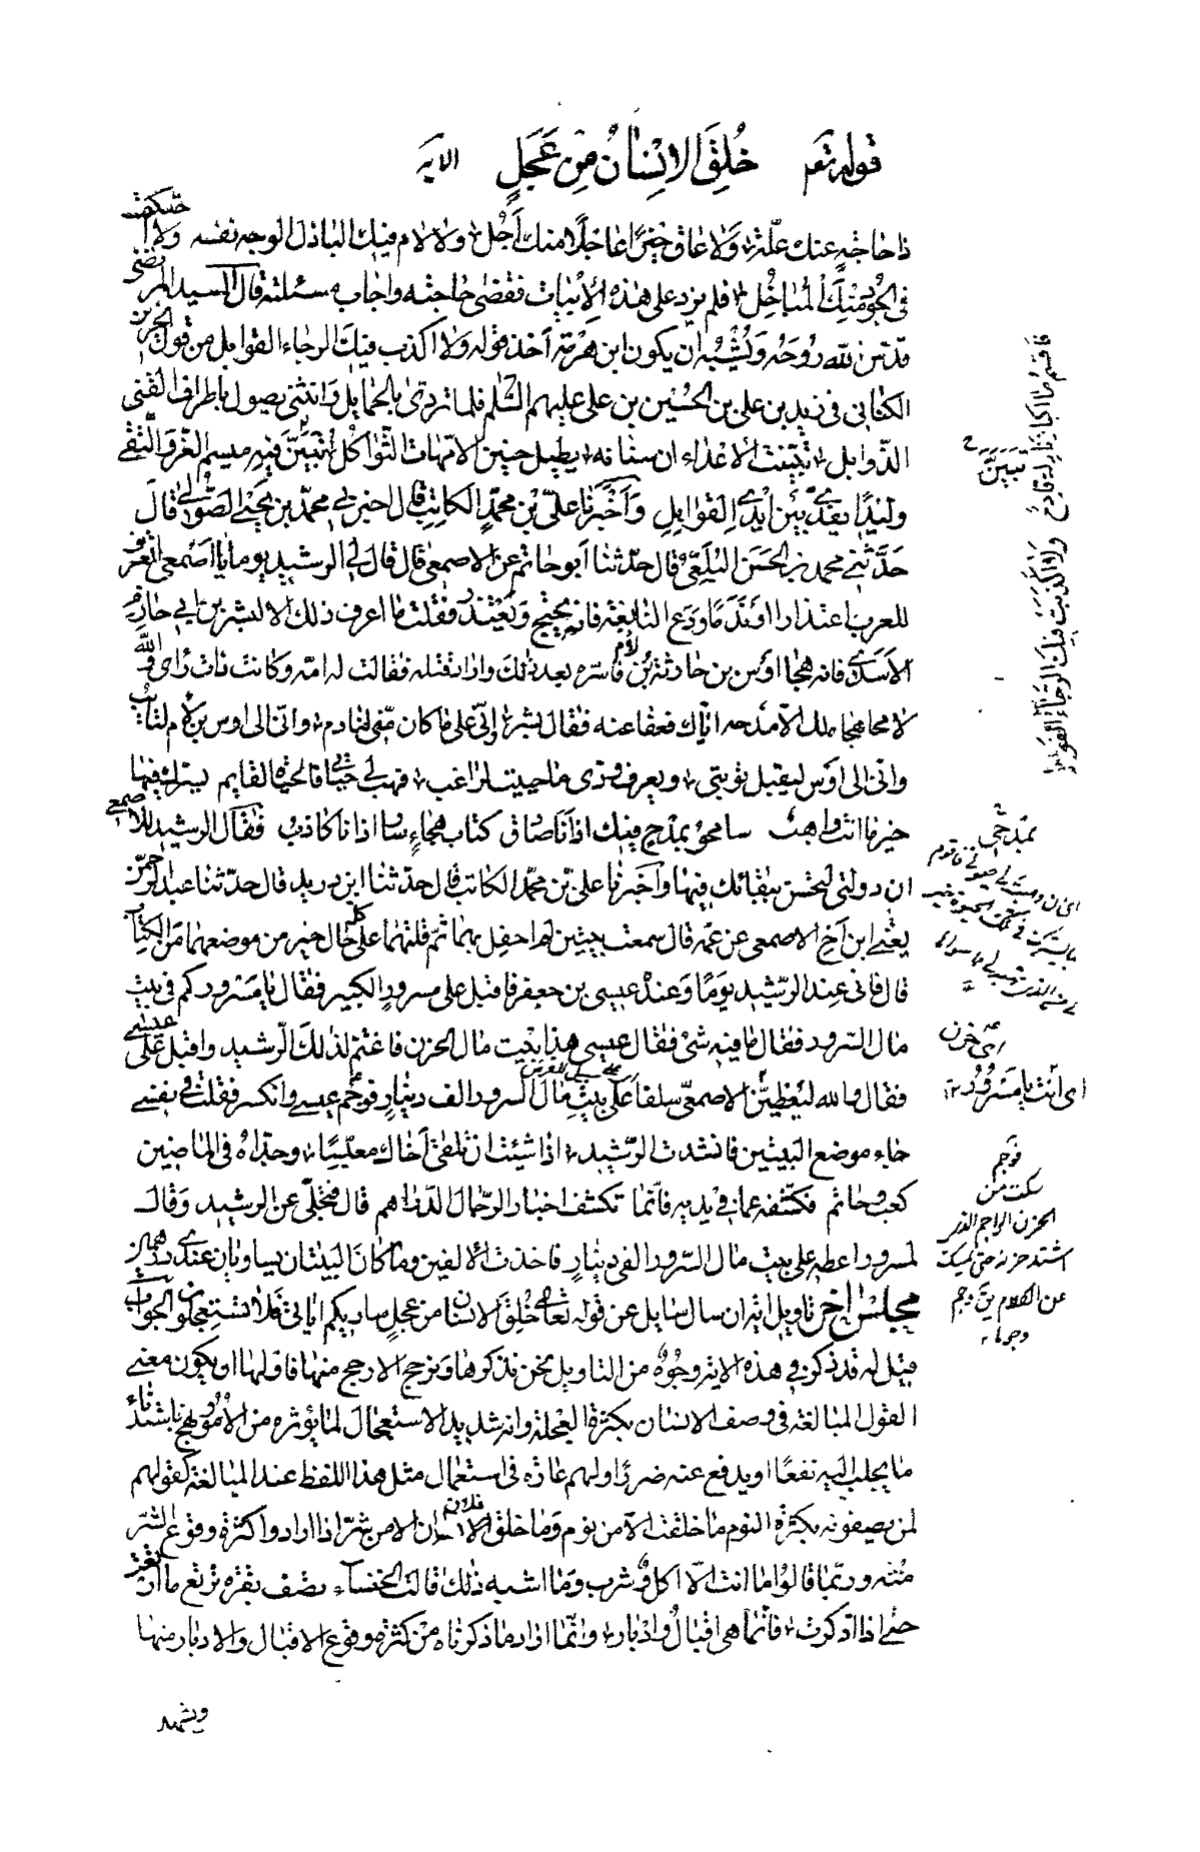 قوله تعم خُلِقَ الاِنْسَانُ مِن عَجَلٍ الايه
ذا حاجة عنك علّة ولا عاق خيرًا عاجلًا منك آجل ولا لام فيك الباذل الوجه نفسه ولا احتكمت
في الجود منك المباخل فلم يزد على هذه الابيات فقضى حاجته واجاب مسئلته قال السيد المرتضى
قدس الله روحه ويشبه ان يكون ابن هرمة اخذ قوله ولا اكذب فيك الرجاء القوابل من قول الحزين
الكنانى في زيد بن على بن الحسين بن على عليهم السّلم فلما تردى بالحمايل وانثنى يصول باطراف القنى
الذوابل تبيّنت الاعداء ان سنانه يطيل حنين الامهات الثواكل تبيّن فيه ميسم العزّ والتقى
وليدًا يفدّى بين ايدي القوابل وأخبرنا علىّ بن محمّد الكاتب قال اخبرني محمّد بن يحيى الصّولي قال
حدّثني محمد بن الحسن البلعىّ قال حدّثنا ابو حاتم عن الاصمعى قال قال لي الرشيد يوما يا اصمعى اتعرف
للعرب اعتذارا وندمًا ودع النابغة فانه يحتج ويعتذر فقلت ما اعرف ذلك الا لبشر بن ابي حازم
الاسدي فانه هجا اوس بن حارثة بن لام فاسره بعد ذلك واراد قتله فقالت له امه وكانت ذات راى والله
لا محا هجاءه لك الا مدحه اياك فعفا عنه فقال بشر واني على ما كان منّى لنادم وانى الى اوس بن لام لتايب
وانى الى اوس ليقبل توبتى ويعرف ودى ما حييت لراغب فهب لي حياتي فالحياة لقايم بسرك فيها
خير ما انت واهب سامحو بمدح فيك اذ انا صادق كتاب هجاء سار اذ انا كاذب فقال الرشيد للاصمعى
ان دولتي لتحسن ببقائك فيها وأخبرنا على بن محمّد الكاتب قال حدثنا ابن دريد قال حدثنا عبد الرحمن
يعني ابن اخ الاصمعى عن عمه قال سمعت بيتين لم احفل بهما ثمّ قلت هما على كل حال خير من موضعهما من الكتاب
قال فانى عند الرشيد يومًا وعنده عيسى بن جعفر فاقبل على مسرور الكبير فقال يا مسرور كم في بيت
مال السرور فقال ما فيه شئ فقال عيسى هذا بيت مال الحزن فاغتم لذلك الرشيد واقبل على عيسى
فقال والله لتعطينّ الاصمعىّ سلفا على بيت مال السرور الف دينار فوجم عيسى وانكسر فقلت في نفسى
جاء موضع البيتين فانشدت الرشيد اذا شئت ان تلقى اخاك معبّسا وجدّاه في الماضين
كعب وحاتم فكشفه عما في يديه فانّما تكشف اخبار الرجال الدراهم قال فتجلّى عن الرشيد وقال
لمسرور اعطه على بيت مال السرور الفى دينار فاخذت الالفين وما كان البيتان يساويان عندي درهمين
مجلس اخر تاويل اية ان سال سايل عن قوله تعالى خُلِقَ الانسان من عجل ساريكم اياتي فلا تستعجلون الجواب
قيل له قد ذكر في هذه الاية وجوه من التاويل نحن نذكرها ونرجح الارجح منها فاولها ان يكون معنى
القول المبالغة في وصف الانسان بكثرة العجلة وانه شديد الاستعجال لما يؤثره من الامور لهج باستدناء
ما يجلب اليه نفعًا او يدفع عنه ضررًا ولهم عادة في استعمال مثل هذا اللفظ عند المبالغة كقولهم
لمن يصفونه بكثرة النوم ما خلقت الا من نوم وما خلق فلان الا من شرّ اذا ارادوا كثرة وقوع الشرّ
منه وربما قالوا ما انت الا اكل وشرب وما اشبه ذلك قالت الخنساء تصف بقرة ترتع ما
حتى اذا ادّكرت فانّما هى اقبالٌ وادبار وانّما اراد ما ذكرناه من كثرة وقوع الاقبال والادبار منها
ويشهد
ولا اكذبت فيك الرجاء القوابل
تبيّن
بمدحتى
اى حزن
اى انت يا مسرور
فوجم
سكت من
الحزن الواجم الذى
اشتد حزنه حتى يمسك
عن الكلام يق وجم
وجوما